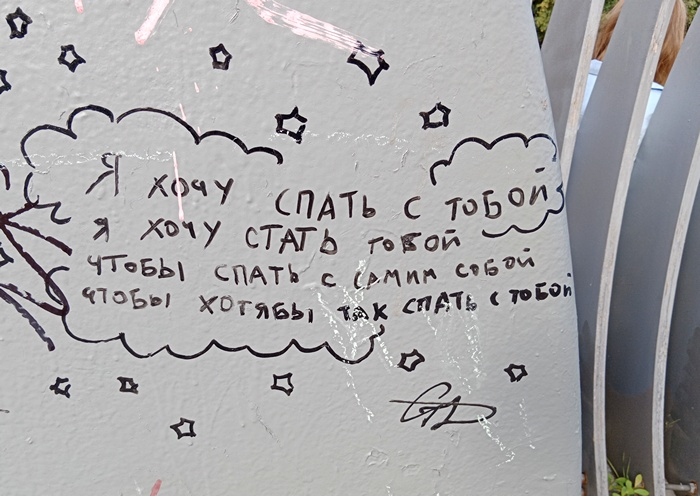 Я хочу СПАТЬ С ТОБОЙ
Я хочу СТАТЬ ТОБОЙ
ЧТОБЫ СПАТЬ С САМИМ СОБОЙ
ЧТОБЫ ХОТЯБЫ ТАК СПАТЬ С ТОБОЙ